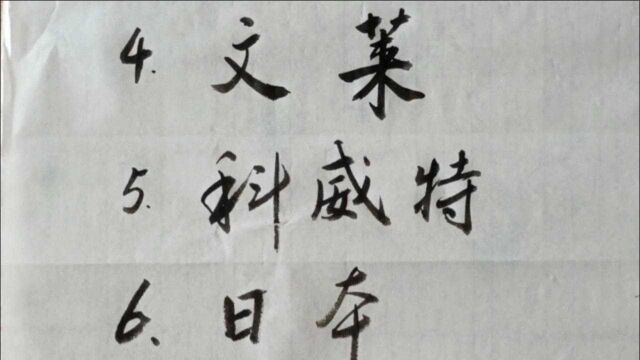 4. 文莱
5. 科威特
6、日本